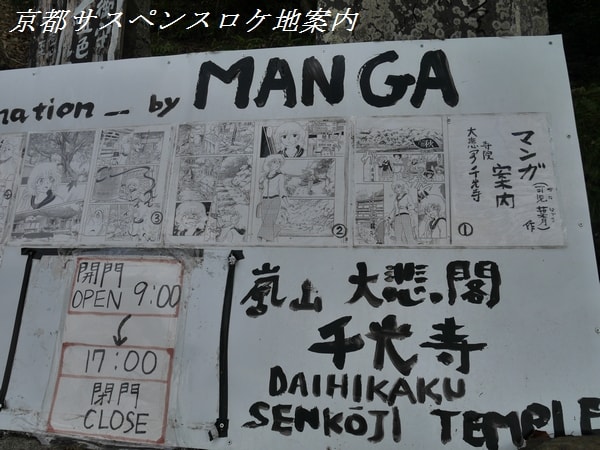 京都サスペンスロケ地案内
mation -- by MANGA
マンガ案内
寺院
大悲閣千光寺
作
秋
①
②
③
開門
OPEN 9:00
17:00
閉門
CLOSE
嵐山 大悲閣
千光寺
DAIHIKAKU
SENKŌJI TEMPLE